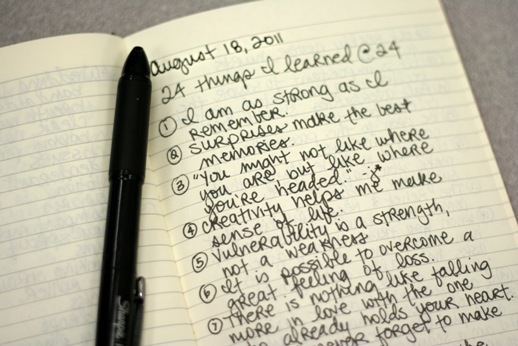 august 18, 2011
24 things I learned @ 24
① I am as strong as I
remember.
② surprises make the best
memories.
③ "you might not like where
you are but like where
you're headed." J*
④ creativity helps me make
sense of life.
⑤ vulnerability is a strength,
not a weakness
⑥ It is possible to overcome a
great feeling of loss.
⑦ There is nothing like falling
more in love with the one
who already holds your heart.
never forget to make